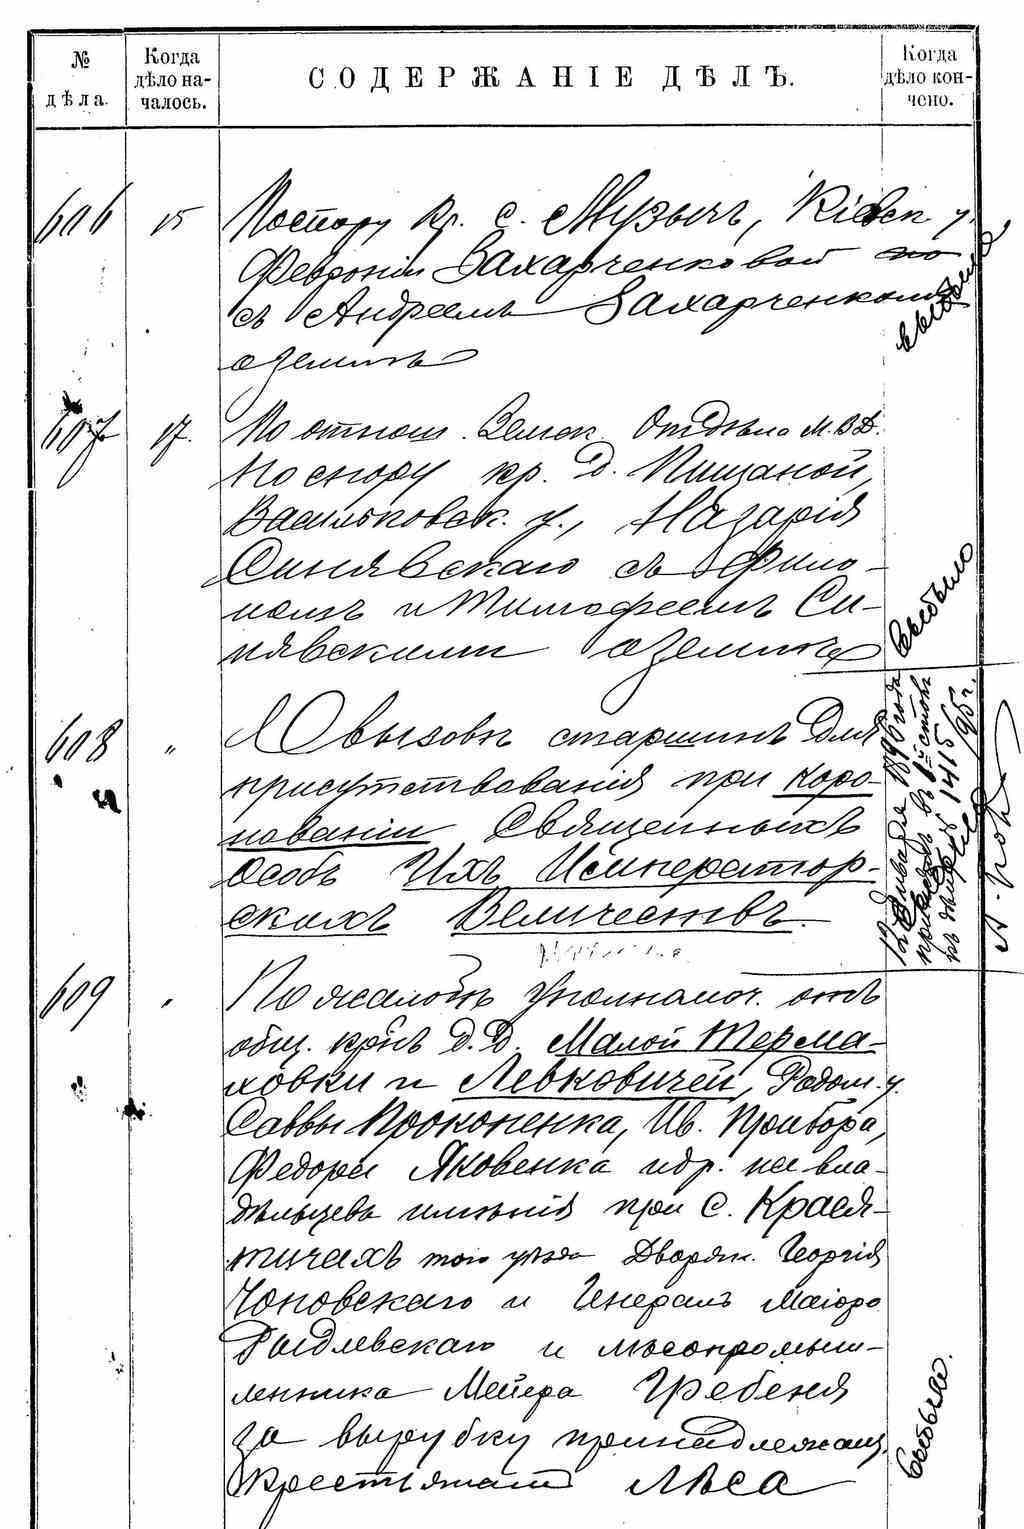 № дѣла.
Когда дѣло на-
чалось.
СОДЕРЖАНІЕ ДѢЛЪ.
Когда
дѣло кон-
чено.
606 15 По спору кр. с. Музычъ, Кіевск. у.
Февроніи Захарченковой по
съ Андреемъ Захарченкомъ
о землѣ
выбыло
607 17. По отнош. Земск. Отдѣла М.В.Д.
по спору кр. д. Пищаной,
Васильковск. у., Назарія
Синявскаго съ Фило-
номъ и Тимофеемъ Си-
нявскими о землѣ
выбыло
608 " О вызовѣ старшинъ для
присутствованія при коро-
нованіи Священныхъ
особъ Ихъ Император-
скихъ Величествъ.
12 Января 1896 года
въ 1й столъ
къ 1415/95 г.
609 " По жалобѣ уполномоч. отъ
общ. крнъ д.д. Малой Терма-
ховки и Левковичей, Радом. у.
Саввы Прокопенка, Ив. Прибора,
Федора Яковенка и др. на вла-
дѣльцевъ имѣнія при с. Крася-
тичахъ того уѣзда Дворян. Георгія
Чоповскаго и Генералъ Маіора
Рыдлевскаго и лѣсопромыш-
ленника Мейера Гребеня
за вырубку принадлежащ.
крестьянамъ лѣса
выбыло.